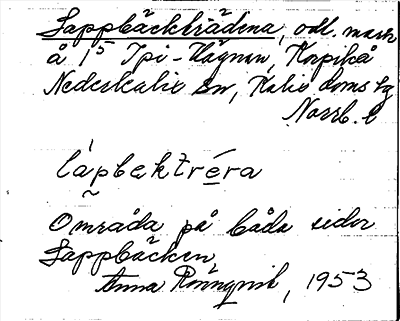 Lappbäckträdena, odl. mark
å 15 Ipi-Hägnan, Korpikå
Nederkalix sn, Kalix doms. tg
Norrb. l
lapbektréra
Område på båda sidor
Lappbäcken,
Anna Rönnqvist, 1953